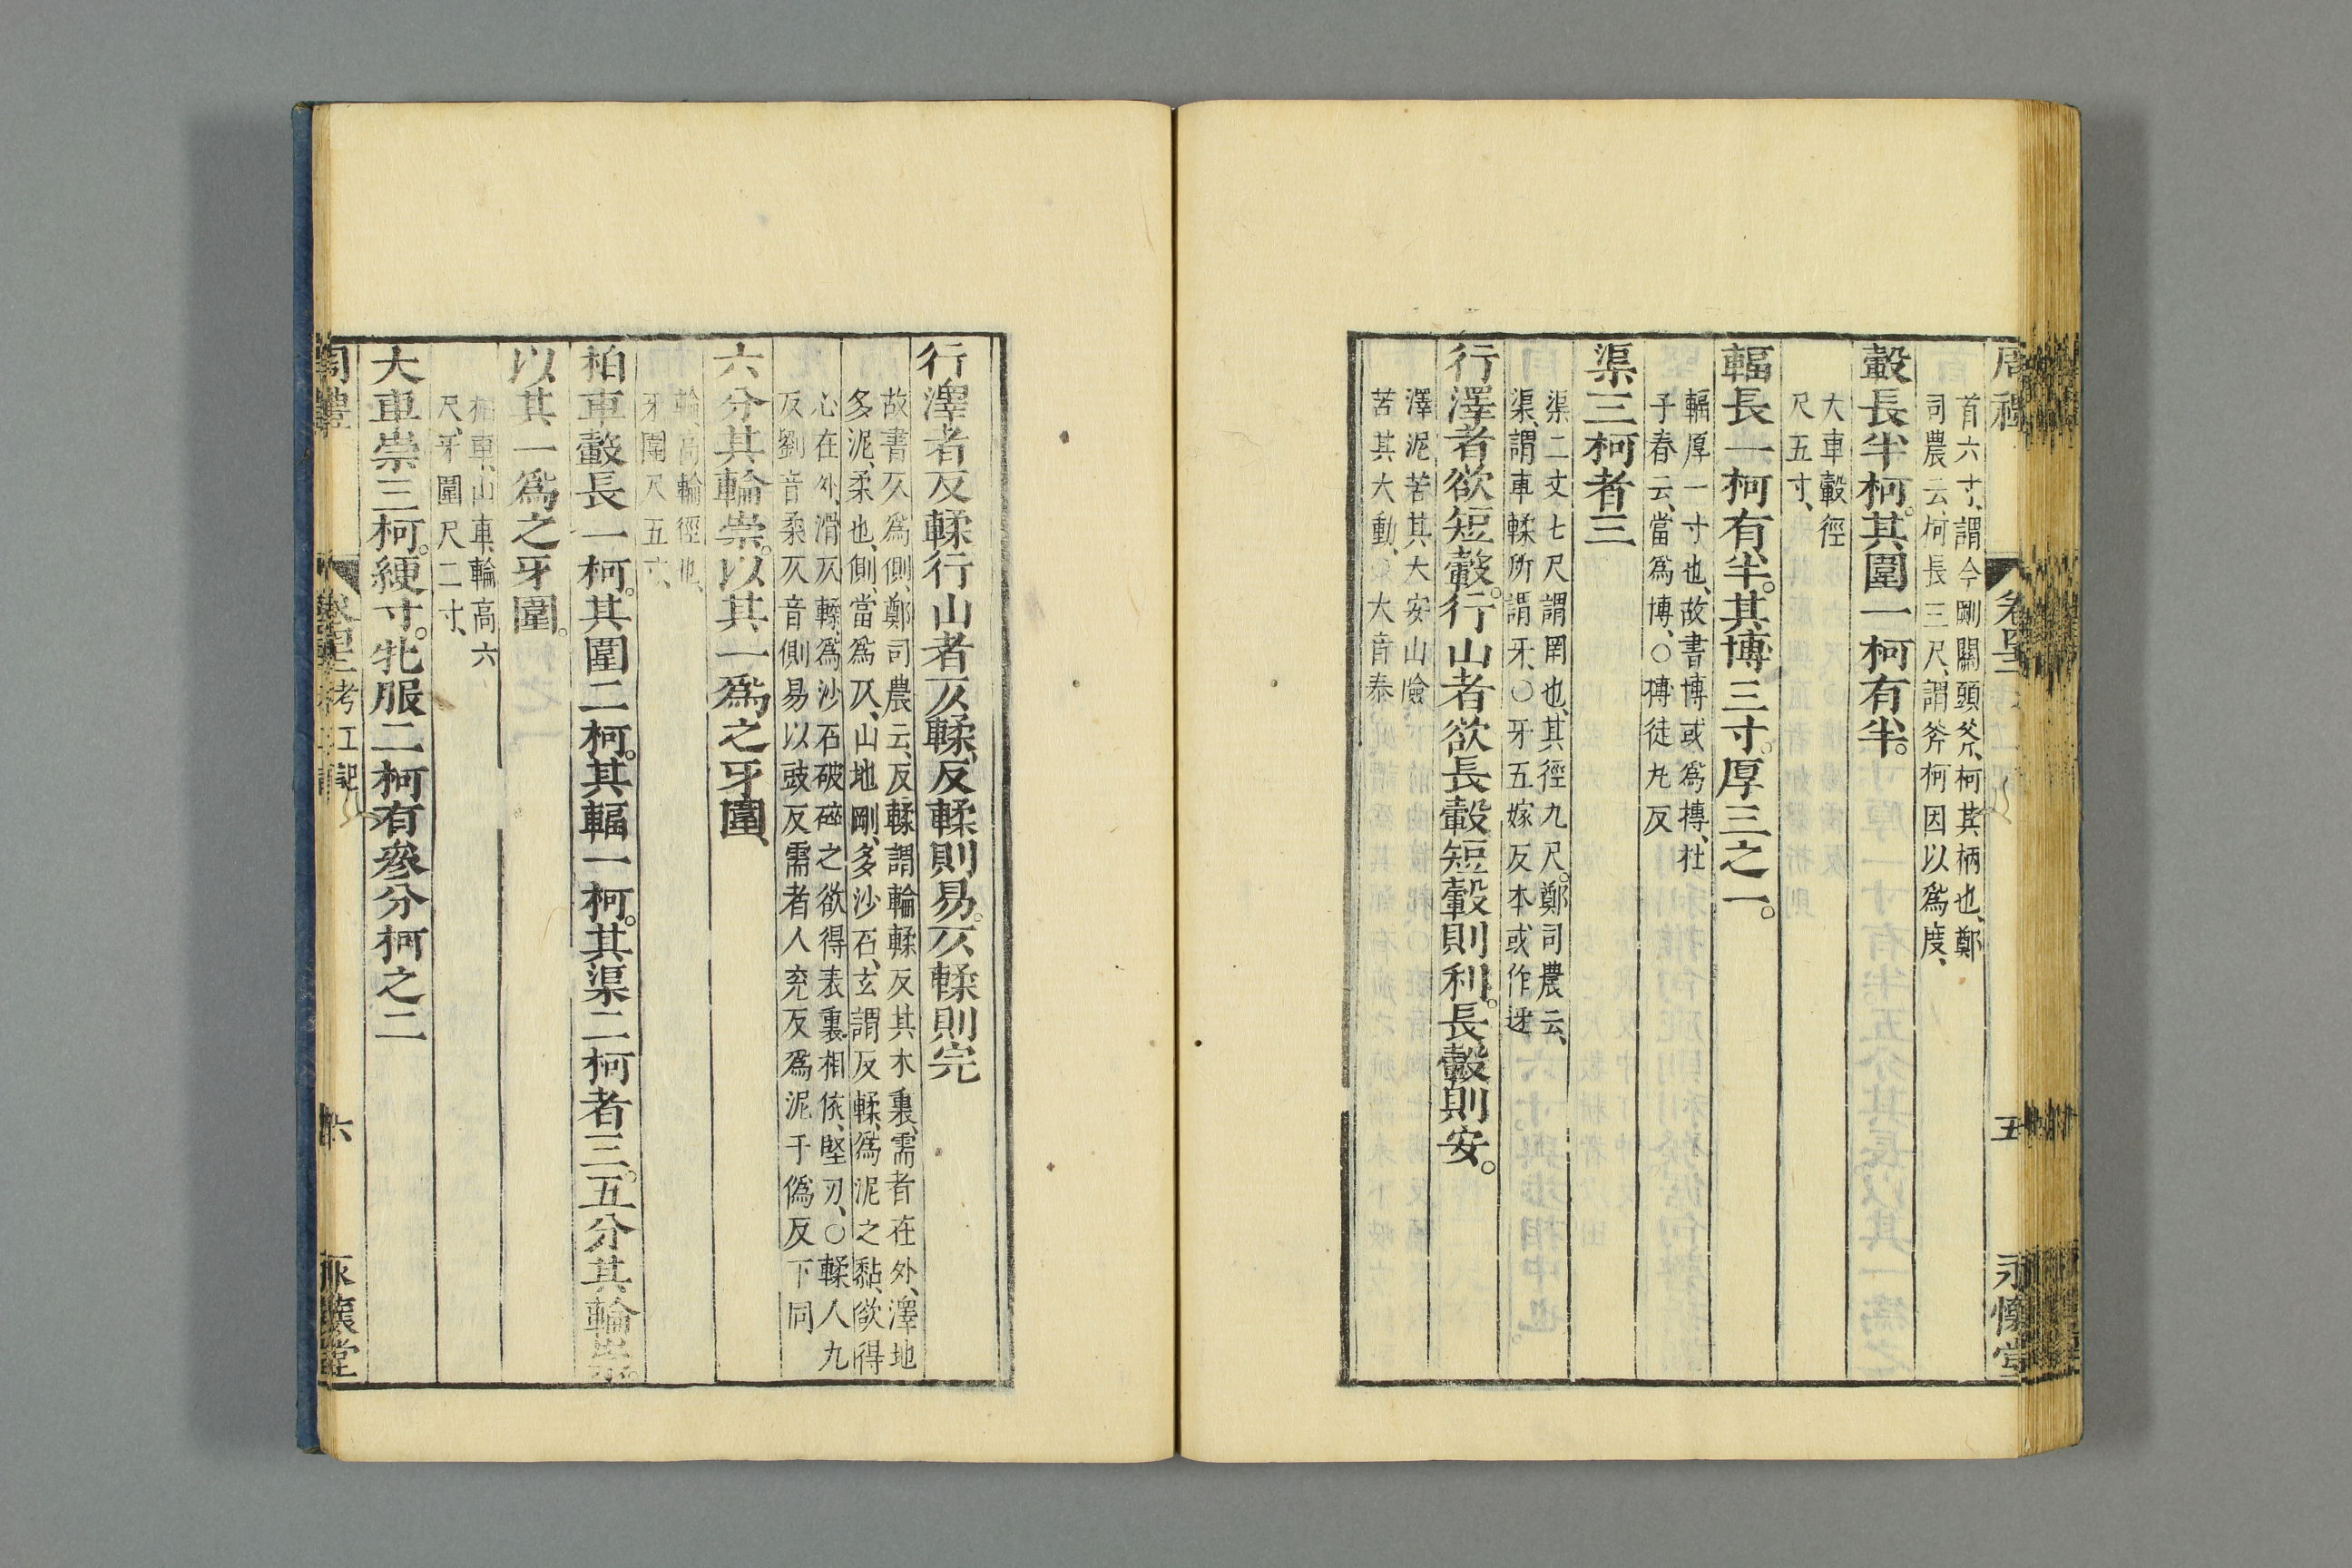 周禮 卷四十二 五 永懷堂
首六寸、謂今剛關頭斧、柯其柄也、鄭
司農云、柯長三尺、謂斧柯因以爲度、
轂長半柯。其圍一柯有半。
大車轂徑
尺五寸、
輻長一柯有半。其博三寸。厚三之一。
輻厚一寸也、故書博或爲摶、杜
子春云、當爲博、○摶徒丸反
渠三柯者三
渠二丈七尺謂罔也、其徑九尺。鄭司農云、
渠、謂車輮所謂牙、○牙五嫁反本或作迓
行澤者欲短轂。行山者欲長轂短轂則利。長轂則安。
澤泥苦其大安山險
苦其大動、○大音泰
行澤者反輮行山者仄輮、反輮則易。仄輮則完
故書仄爲側、鄭司農云、反輮謂輪輮反其木裏、需者在外、澤地
多泥、柔也、側、當爲仄、山地剛、多沙石、玄謂反輮、爲泥之黏、欲得
心在外、滑仄輮、爲沙石破碎之欲得表裏相依、堅刃、○輮人九
反劉音柔仄音側易以豉反需者人兖反爲泥于僞反下同
六分其輪崇。以其一爲之牙圍、
輪高輪徑也、
牙圍尺五寸、
柏車轂長一柯。其圍二柯。其輻一柯。其渠二柯者三。五分其輪崇。
以其一爲之牙圍。
柏車、山車、輪高六
尺、牙圍尺二寸、
大車崇三柯。綆寸。牝服二柯有參分柯之二
周禮 卷四十二 考工記 六 永懷堂